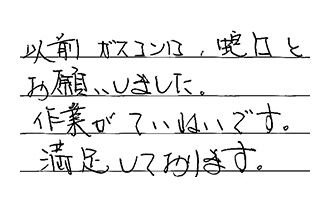 以前ガスコンロ、蛇口と
お願いしました。
作業がていねいです。
満足しております。